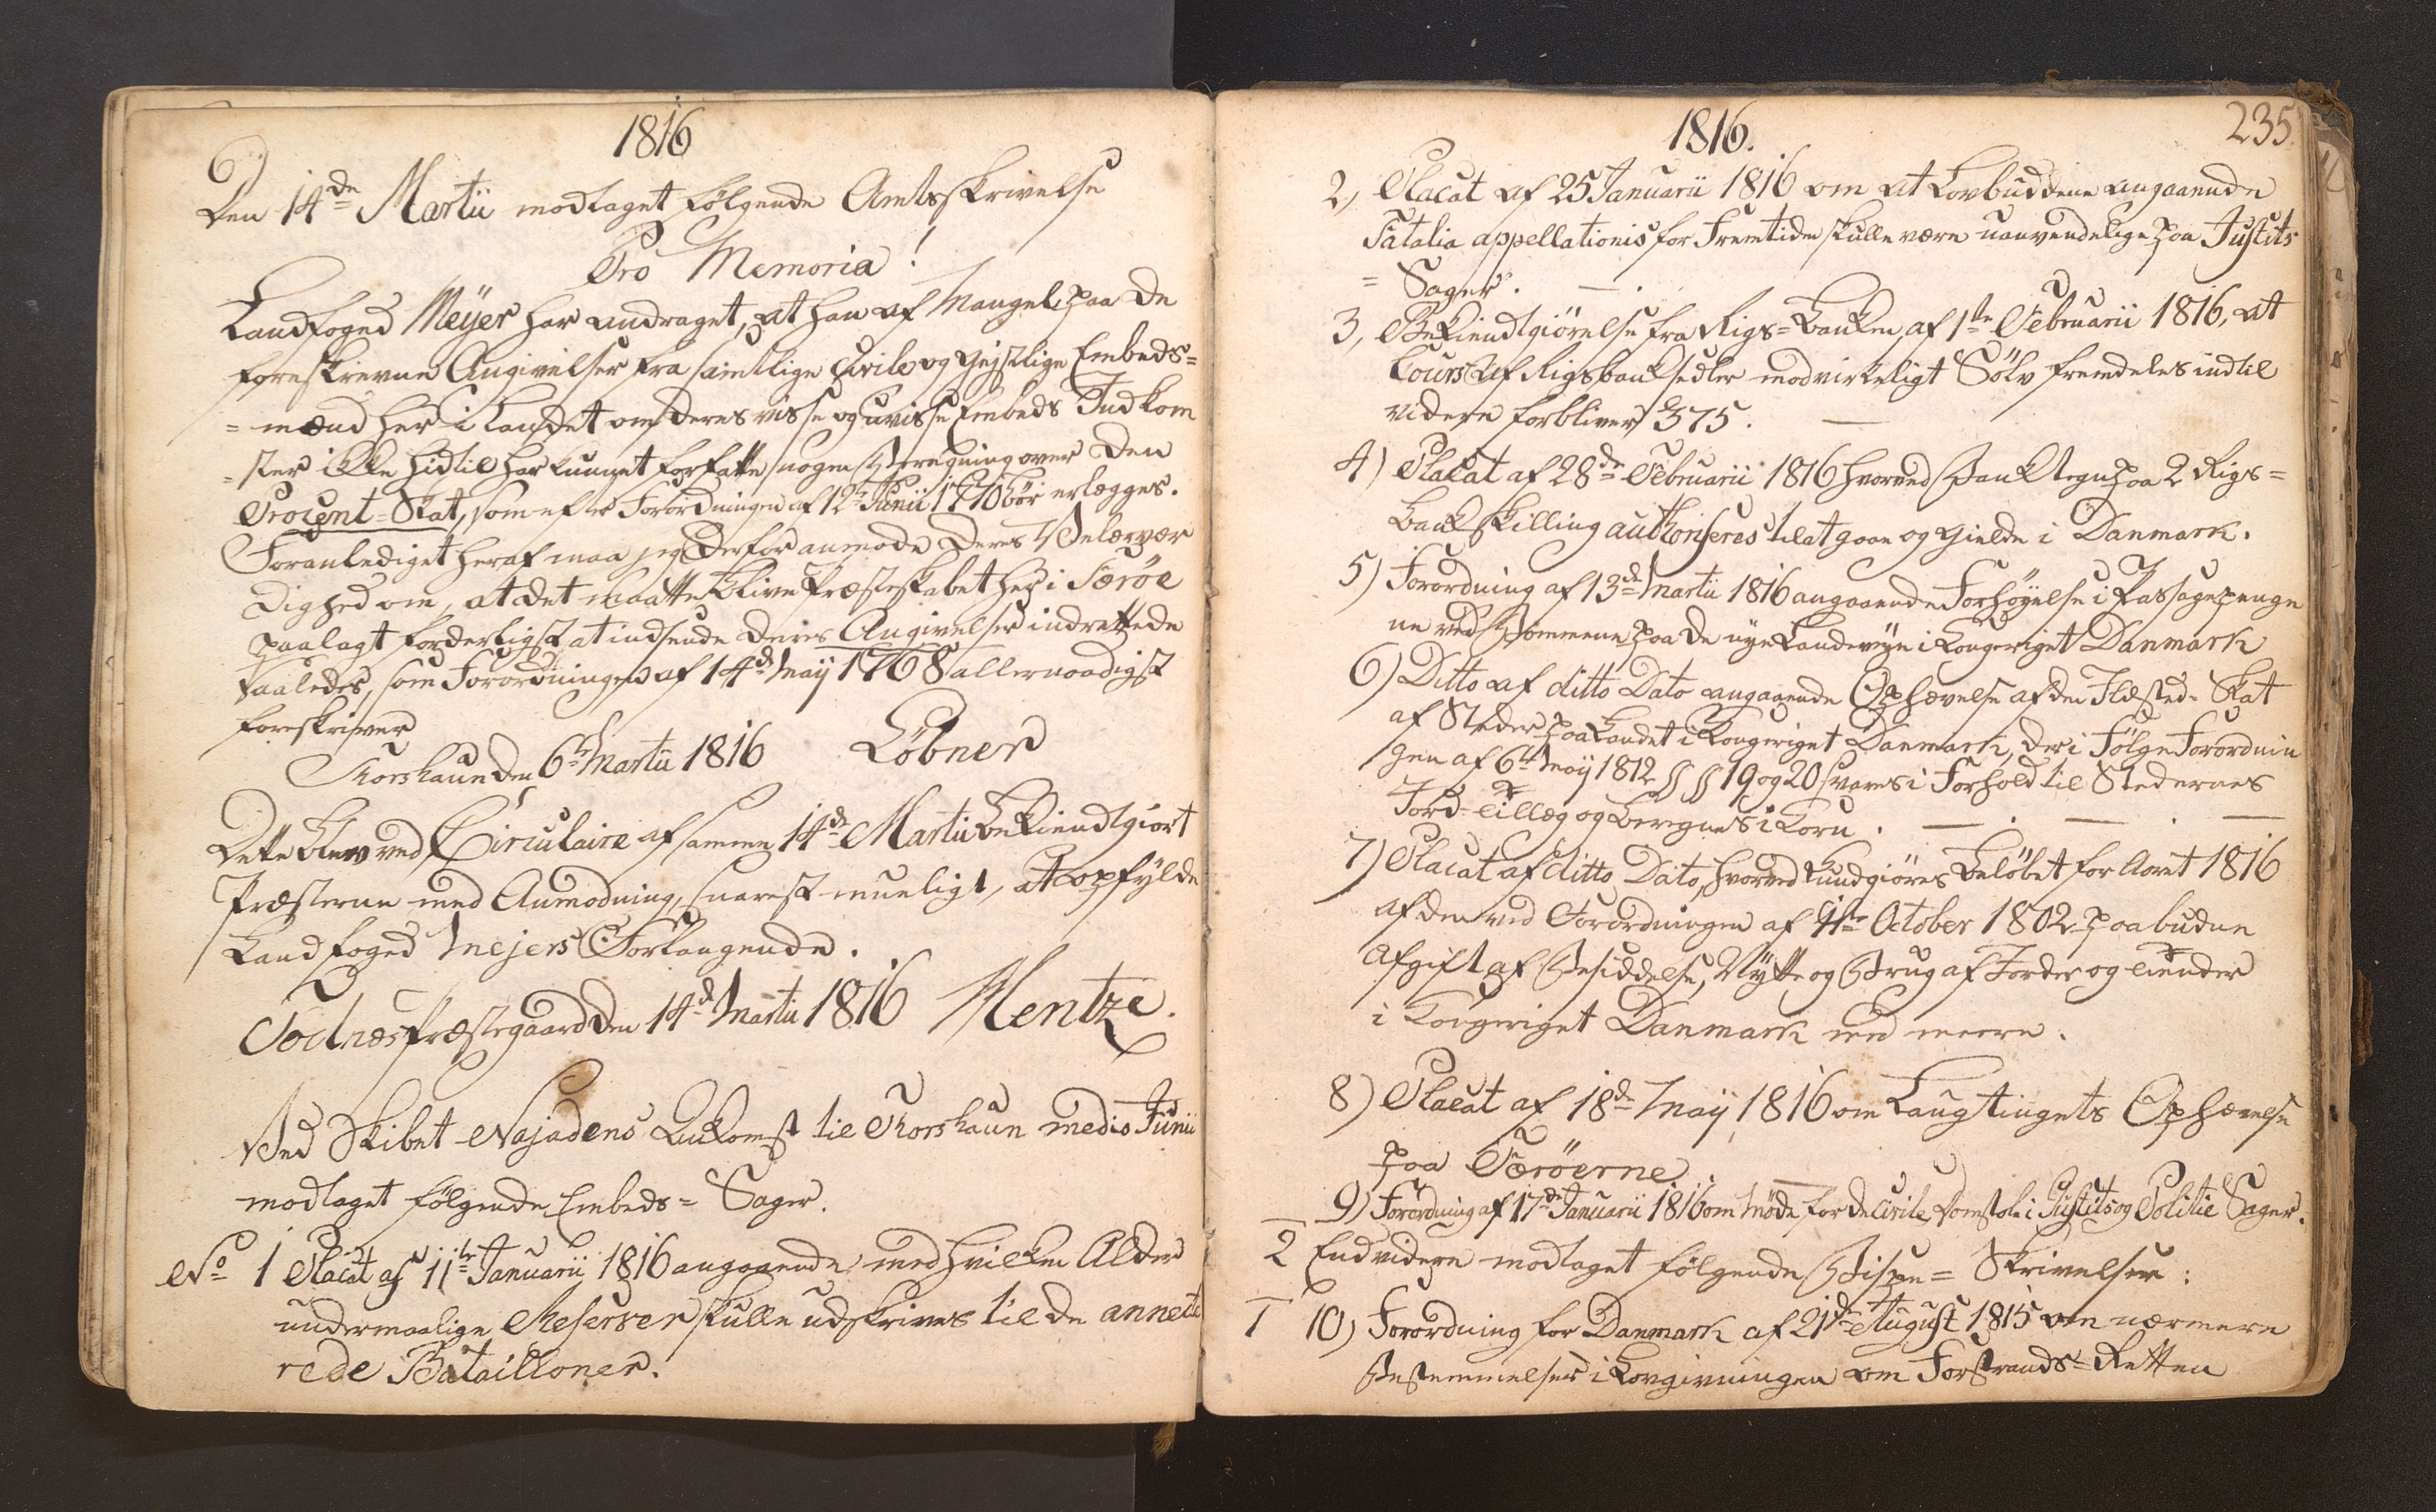 1816
Den 14de Martii modtaget følgende Amtsskrivelse
Pro Memoria!
Landfoged Meÿer har andraget, at han af Mangel paa de
foreskrevne Angivelser fra samtlige Civile og Gejstlige Embeds=
= mænd her i Landet om deres visse og uvisse Embeds Indkom
= ster ikke hidtil har kunnet forfatte nogen Beregning over den
Procent=Skat, som efter Forordningen af 12te Junii 1770 bør erlægges.
Foranlediget heraf maa jeg derfor anmode Deres Velærvær
dighed om, at det maatte blive Præsteskabet her i Færøe
paalagt forderligst at indsende deres Angivelser indrettede
saaledes, som Forordningen af 14de Maÿ 1768 allernaadigst
foreskriver
Thorshaun den 6te Martii 1816 Löbner
Dette blev ved Circulaire af samme 14de Martii bekiendtgiort
Præsterne med Anmodning, snarest mueligt, at opfÿlde
Landfoged Mejers Forlangende.
Todnæs Præstegaard den 14de Martii 1816 Hentze.
Ved Skibet Najadens Ankomst til Thorshaun medio Junii
modtaget følgende Embeds= Sager.
No 1 Placat af 11te Januarii 1816 angaaende med hvilken Alder
undermaalige Reserver skulle udskrives til de annecte
rede Batailloner.
1816.
235
2, Placat af 25 Januarii 1816 om at Lovbuddene angaaende
Fatalia appellationis for Fremtiden skulle være uanvendelige paa Justits
= Sager.
3, Bekiendtgiørelse fra Rigs=Banken af 1ste Februarii 1816, at
Cours af Rigsbanksedler mod virkeligt Sölv fremdeles indtil
videre forbliver 375.
4) Placat af 28de Februarii 1816 hvorved Banktegn paa 2 Rigs=
bankskilling authoriseres til at gaae og gielde i Danmark.
5) Forordning af 13de Martii 1816 angaaende Forhöÿelse i Passagepenge
ne ved Bommene paa de nÿe Landeveÿe i Kongeriget Danmark
6) Ditto af ditto Dato angaaende Ophævelse af den Ildsted=Skat
af Steder paa Landet i Kongeriget Danmark, der i Fölge Forordnin
gen af 6te Maÿ 1812 §§ 19 og 20 svares i Forhold til Stedernes
Jord=tillæg og beregnes i Korn.
7) Placat af ditto Dato, hvorved kundgiöres Belöbet for Aaret 1816
af den ved Forordningen af 1ste October 1802 paabudne
Afgift af Besiddelse, Nÿtte og Brug af Jorder og Tiender
i Kongeriget Danmark med meere.
8) Placat af 18de Maÿ 1816 om Laugtingets Ophævelse
paa Færöerne.
9) Forordning af 17de Januarii 1816 om Möde for de Civile Domstole i Justits og Politie Sager.
2 Endvidere modtaget følgende Bispe= Skrivelser:
1 10) Forordning for Danmark af 21de August 1815 om nærmere
Bestemmelser i Lovgivningen om Forstrands=Retten